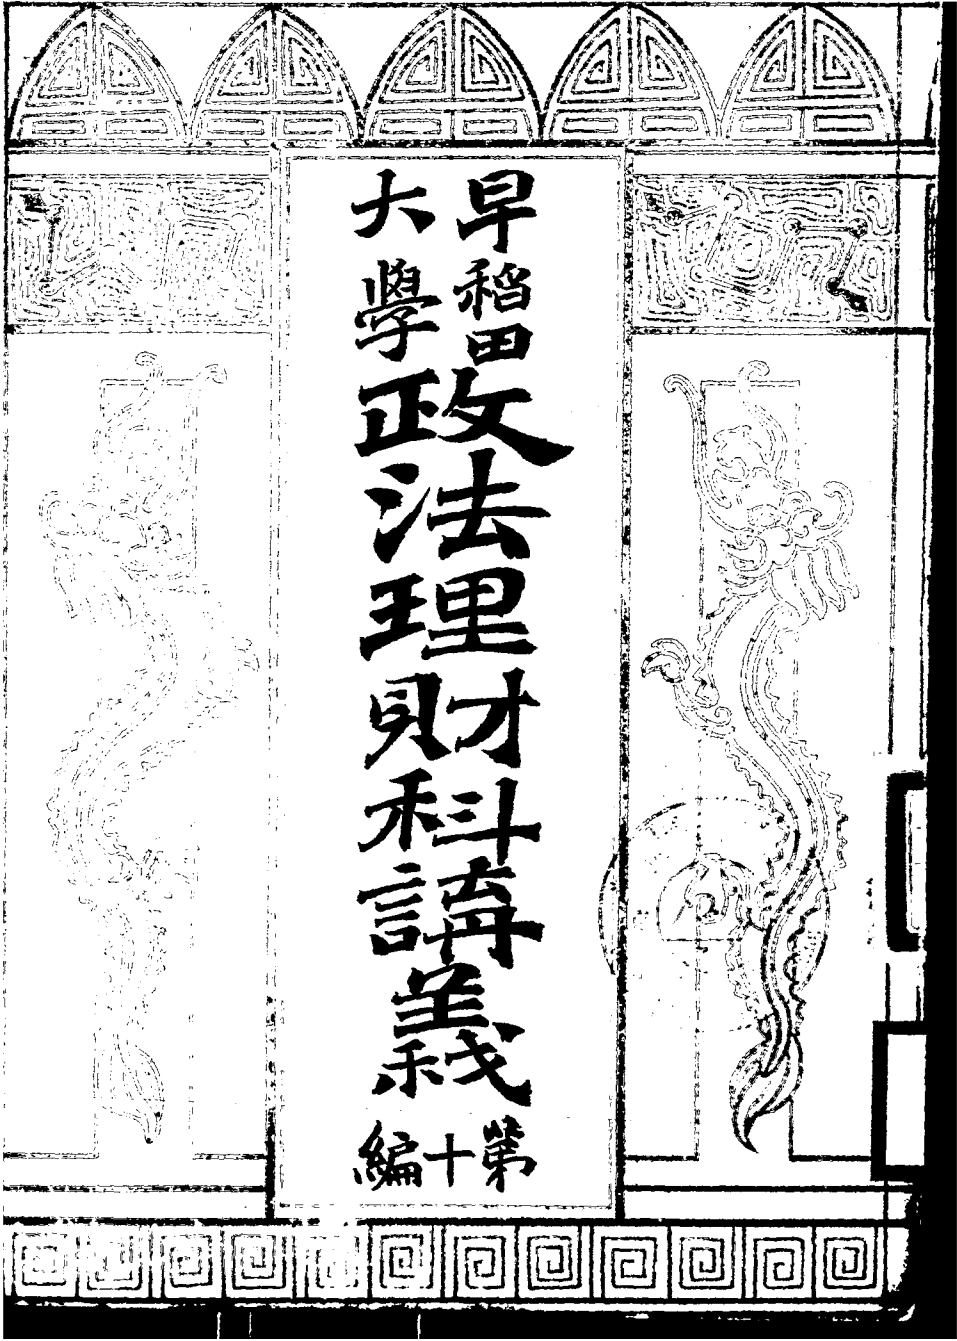 早稻田
大學
政法理財科講義
第十編